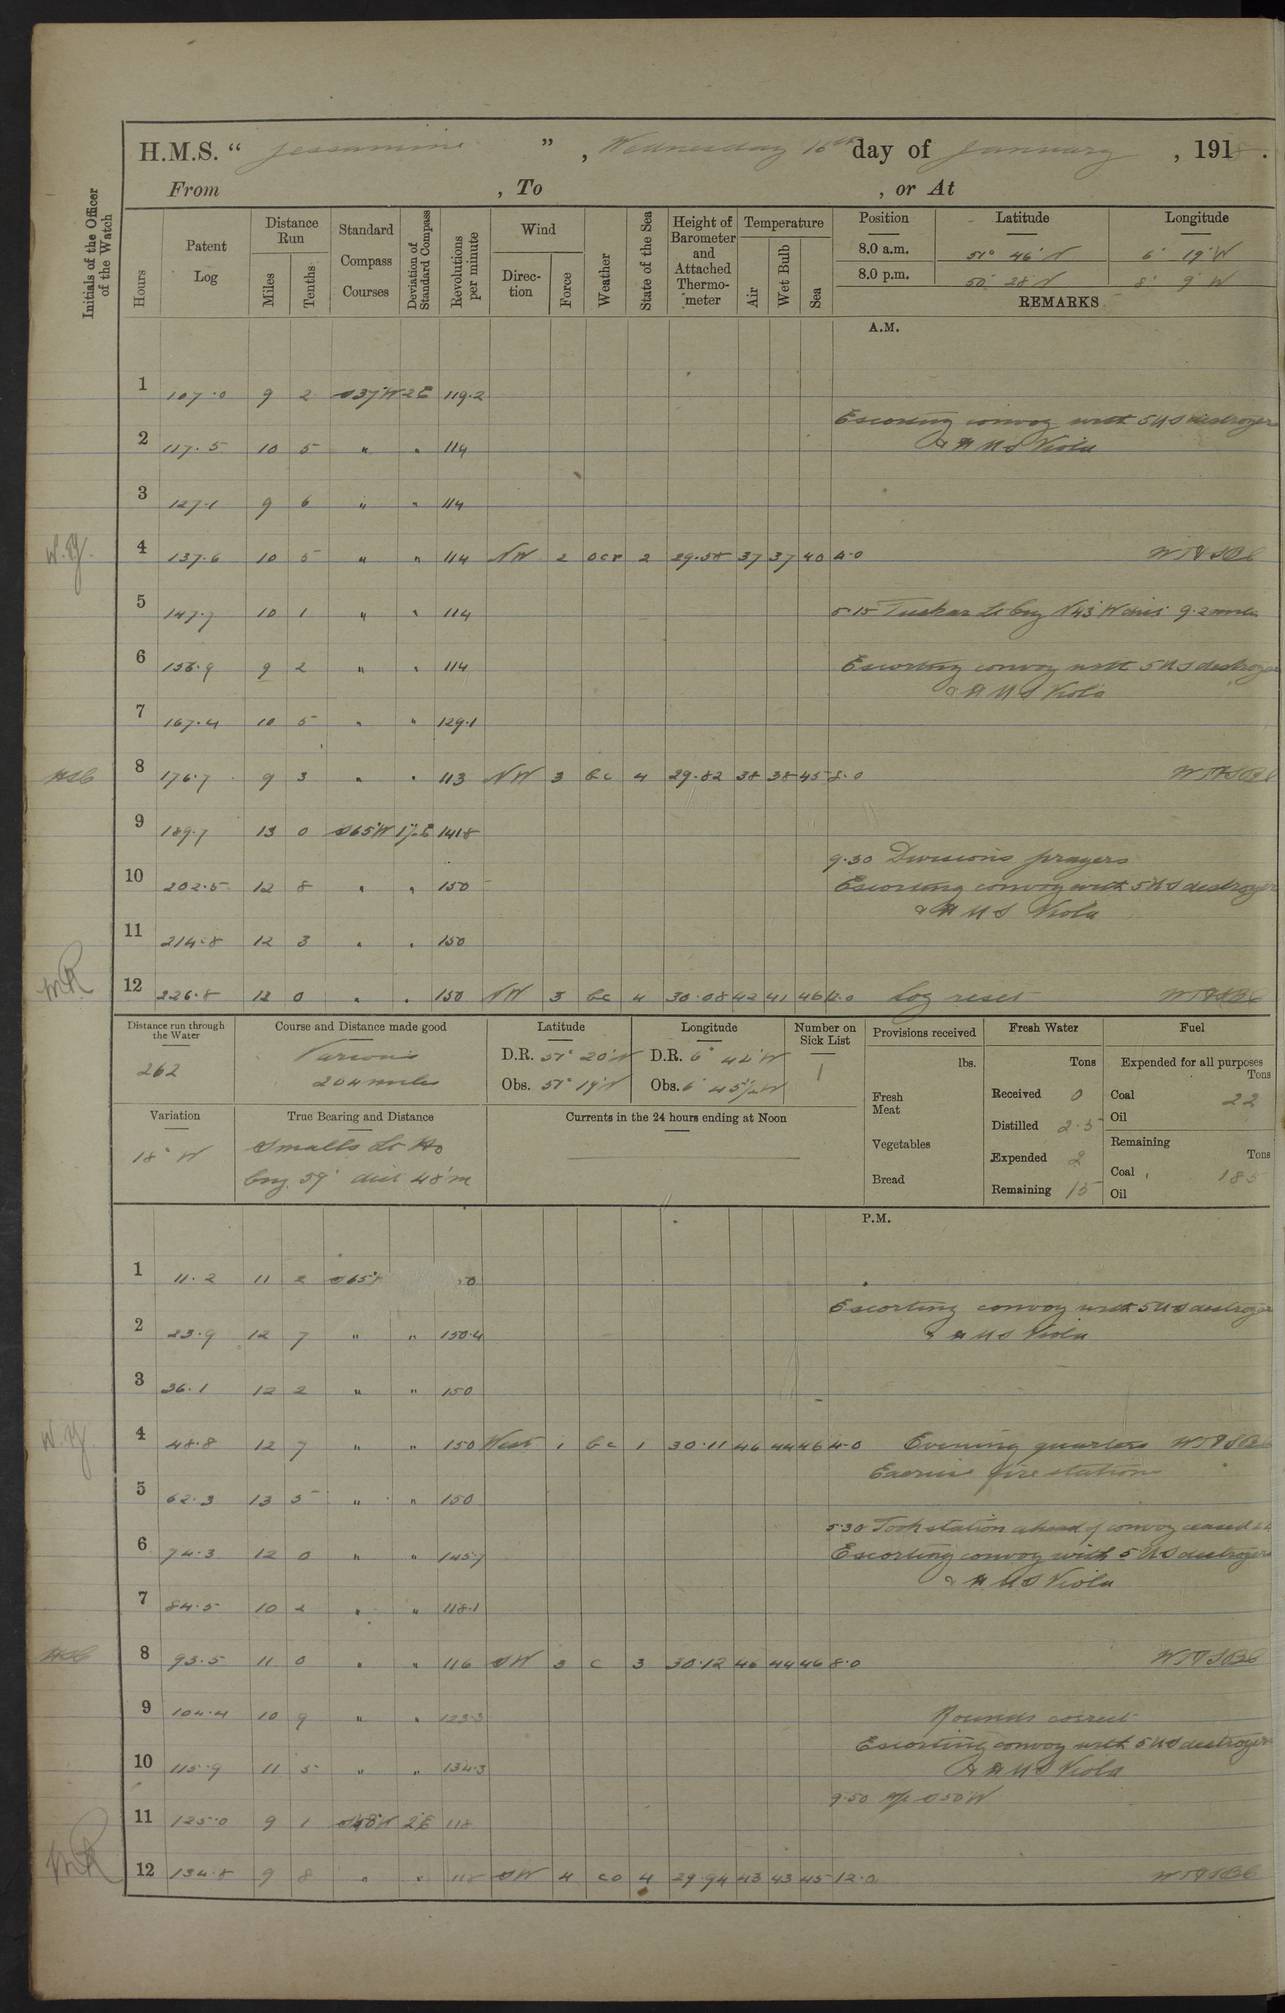 H.M.S. “ Jessamine ” , Wednesday 16th day of January , 1918 .
From , To , or At
Initials of the Officer of the Watch
Hours
Patent Log
Distance Run
Miles
Tenths
Standard Compass Courses
Deviation of Standard Compass
Revolutions per minute
Wind
Direction
Force
Weather
State of the Sea
Height of Barometer and Attached Thermometer
Temperature
Air
Wet Bulb
Sea
Position Latitude Longitude
8.0 a.m. 51° 46' N 6° 19' W
8.0 p.m. 50° 28' N 8° 9' W
REMARKS
A.M.
1 107.0 9 2 S37°W 2E 119.2
Escorting convoy with 5 US destroyers
2 117.5 10 5 " " 114 & HMS Viola
3 127.1 9 6 " " 114
W.Y. 4 137.6 10 5 " " 114 NW 2 ocr 2 29.58 37 37 40 4.0
5 147.7 10 1 " " 114 5.15 Tuskar Lt brg N43°W dis 9.2 miles
6 156.9 9 2 " " 114 Escorting convoy with 5 US destroyers
& HMS Viola
7 167.4 10 5 " " 129.1
8 176.7 9 3 " " 113 NW 3 bc 4 29.82 38 38 45 8.0
9 189.7 13 0 S65°W 1½E 141.8
9.30 Divisions prayers
10 202.5 12 8 " " 150 Escorting convoy with 5 US destroyers
& HMS Viola
11 214.8 12 3 " " 150
12 226.8 12 0 " " 150 NW 3 bc 4 30.08 42 41 46 12.0 Log reset
Distance run through the Water
262
Course and Distance made good
Various
204 miles
Latitude
D.R. 51° 20' N
Obs. 51° 19' N
Longitude
D.R. 6° 44' W
Obs. 6° 45½' W
Number on Sick List
1
Provisions received
lbs.
Fresh Meat
Vegetables
Bread
Fresh Water
Tons
Received 0
Distilled 2.5
Expended 2
Remaining 15
Fuel
Expended for all purposes
Tons
Coal 22
Oil
Remaining
Tons
Coal 185
Oil
Variation
18° W
True Bearing and Distance
Smalls Lt Ho
brg. 59° dist 48'm
Currents in the 24 hours ending at Noon
P.M.
1 11.2 11 2 S65°
Escorting convoy with 5 US destroyers
2 23.9 12 7 " " 150.4 & HMS Viola
3 36.1 12 2 " " 150
W.Y. 4 48.8 12 7 " " 150 West 1 bc 1 30.11 46 44 46 4.0 Evening quarters
Exercise fire stations
5 62.3 13 5 " " 150
5.30 Took station ahead of convoy ceased
6 74.3 12 0 " " 145.7 Escorting convoy with 5 US destroyers
& HMS Viola
7 84.5 10 2 " " 118.1
8 93.5 11 0 " " 116 SW 3 c 3 30.12 46 44 46 8.0
9 104.4 10 9 " " 123.3 Rounds correct
Escorting convoy with 5 US destroyers
10 115.9 11 5 " " 134.3 & HMS Viola
9.50 a/c S50°W
11 125.0 9 1 S48°W 2°E 118
12 134.8 9 8 " " 118 SW 4 co 4 29.94 43 43 45 12.0